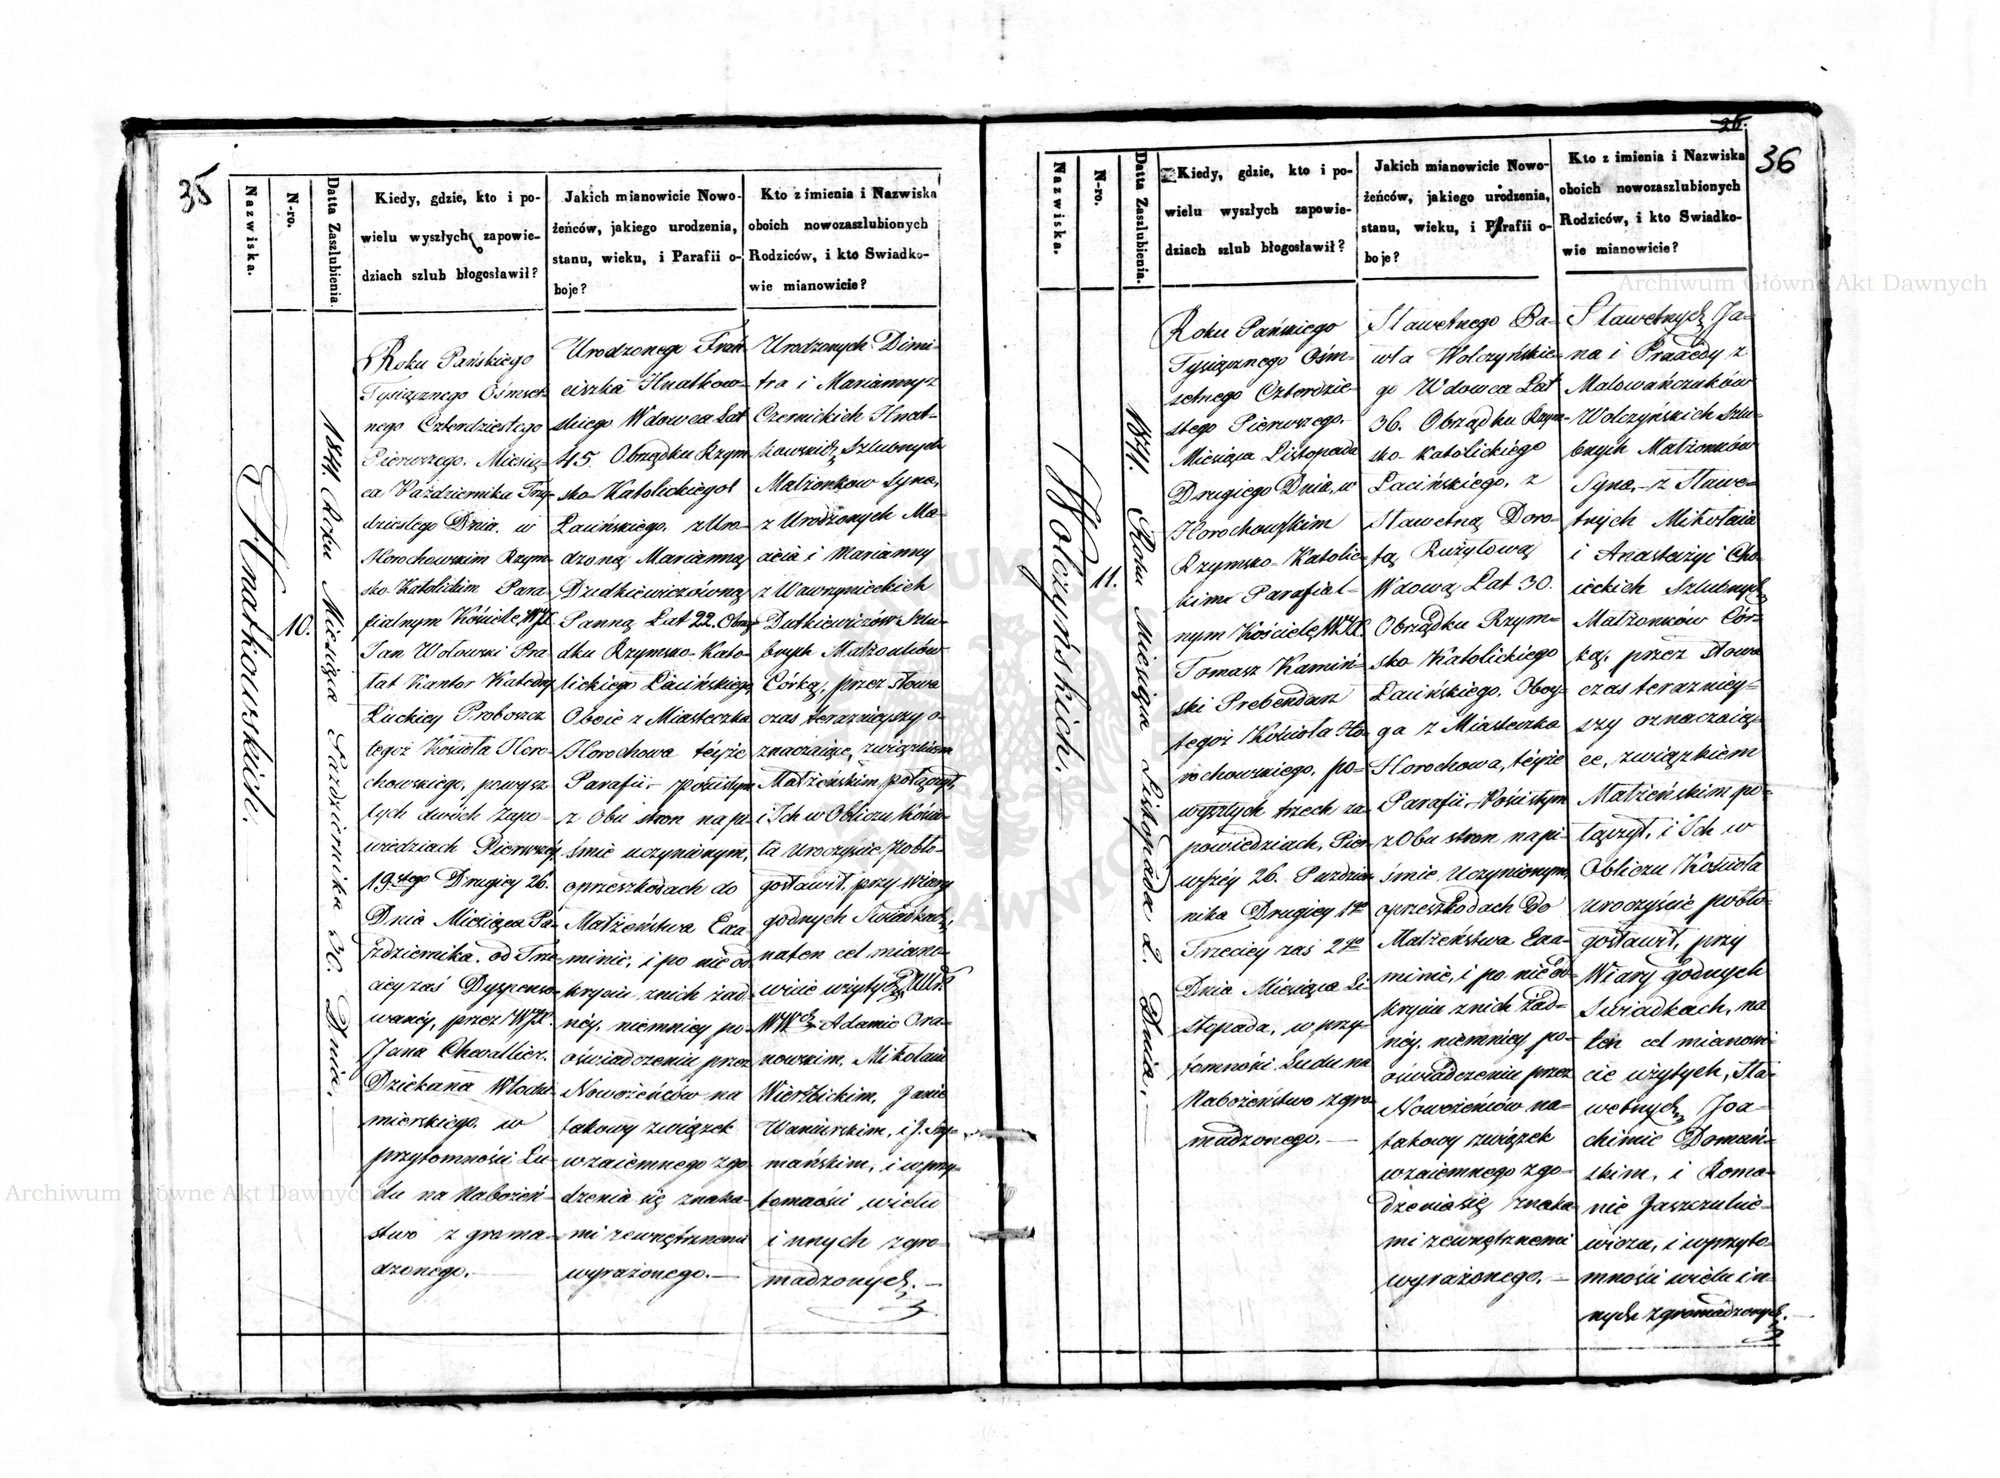 35
Nazwiska.
N-ro.
Datta Zaslubienia.
Kiedy, gdzie, kto i po-
wielu wyszłych zapowie-
dziach szlub błogosławił?
Jakich mianowicie Nowo-
żeńców, jakiego urodzenia,
stanu, wieku, i Parafii o-
boje?
Kto z imienia i Nazwiska
oboich nowozaszlubionych
Rodziców, i kto Swiadko-
wie mianowicie?
Hnatkowskich.
10.
1841. Roku Miesiąca Października 30. Dnia.
Roku Pańskiego
Tysiącznego Ośmset-
nego Czterdziestego
Pierwszego. Miesią-
ca Października Trzy-
dziestego Dnia. w
Horochowskim Rzym-
sko Katolickim Para-
fialnym Kościele WJX.
Jan Wołowski Pra-
łat Kantor Katedry
Łuckiey Proboszcz
tegoż Kościoła Horo-
chowskiego, powysz-
łych dwóch Zapo-
wiedziach Pierwszey
19stego Drugiey 26.
Dnia Miesiąca Pa-
ździernika. od Trze-
ciey zaś Dyspenso-
waney, przez WJX.
Jana Chevallier.
Dziekana Włodzi-
mierskiego. w
przytomności Lu-
du na Nabożeń-
stwo zgroma-
dzonego.
Urodzonego Fran-
ciszka Hnatkow-
skiego Wdowca Lat
45. Obrządku Rzym-
sko Katolickiego
Łacińskiego. z Uro-
dzoną Marianną
Dudkiewiczówną
Panną Lat 22. Obrzą-
dku Rzymsko Kato-
lickiego Łacińskiego,
Oboie z Miasteczka
Horochowa téyże
Parafii, pościsłym
z Obu stron na pi-
śmie uczynionym,
oprzeszkodach do
Małżeństwa Exa-
minie, i po nie od-
kryciu znich żad-
néy, niemniey po-
oświadczeniu przez
Nowożeńców na
takowy związek
wzaiemnego zgo-
dzenia się znaka-
mi zewnętrznemi
wyrażonego.
Urodzonych Dimi-
tra i Marianny z
Czernickich Hnat-
kowskich Szlubnych
Małżonkow Syna,
z Urodzonych Ma-
cieia i Marianny
z Wawrynieckich
Dutkiewiczów Szlu-
bnych Małżonków
Córką, przez słowa
czas teraznieyszy o-
znaczaiące, związkiem
Małżeńskim połączył,
i Ich w Obliczu Kościo-
ła Uroczyście Pobło-
gosławił, przy Wiary
godnych Swiadkach,
naten cel miano-
wicie użytych
WWch Adamie Ora-
nowskim, Mikołaiu
Wierzbickim, Janie
mańskim, i wprzy-
tomności wielu
innych zgro-
madzonych.
36
Nazwiska.
N-ro.
Datta Zaszlubienia.
Kiedy, gdzie, kto i po-
wielu wyszłych zapowie-
dziach szlub błogosławił?
Jakich mianowicie Nowo-
żeńców, jakiego urodzenia,
stanu, wieku, i Parafii o-
boje?
Kto z imienia i Nazwiska
oboich nowozaszlubionych
Rodziców, i kto Swiadko-
wie mianowicie?
Wolczyńskich.
11.
1841. Roku Miesiąca Listopada 2. Dnia.
Roku Pańskiego
Tysiącznego Ośm-
setnego Czterdzie-
stego Pierwszego.
Miesiąca Listopada
Drugiego Dnia, w
Horochowskim
Rzymsko-Katolic-
kim Parafial-
nym Kościele, WJX.
Tomasz Kamiń-
ski Prebendarz
tegoż Kościoła Ho-
rochowskiego, po-
wyszłych trzech za-
powiedziach, Pier-
wszéy 26. Paździer-
nika Drugiey 1go
Trzeciey zaś 2go
Dnia Miesiąca Li-
stopada, w przy-
tomności Ludu na
Nabożeństwo zgro-
madzonego.
Sławetnego Pa-
wła Wolczyńskie-
go Wdowca Lat
36. Obrządku Rzym-
sko Katolickiego
Łacińskiego, z
Sławetną Doro-
tą Rużyłową
Wdową Lat 30.
Obrządku Rzym-
sko Katolickiego
Łacińskiego. Oboy-
ga z Miasteczka
Horochowa, téyże
Parafii, Pościsłym
z Obu stron na pi-
śmie Uczynionym,
oprzeszkodach do
Małżeństwa Exa-
minie, i po nie od-
kryciu znich żad-
néy, niemniey po-
oświadczeniu przez
Nowożeńców na-
takowy związek
wzaiemnego zgo-
dzenia się znaka-
mi zewnętrznemi
wyrażonego.
Sławetnych Ja-
na i Praxedy z
Malowańczuków
Wolczyńskich Szlu-
bnych Małżonków
Syna, z Sławe-
tnych Mikołaia
i Anastazyi Cho-
ieckich Szlubnych
Małżonków Cór-
ką, przez słowa
czas terazniey-
szy oznaczaią-
ce, związkiem
Małżeńskim po-
łączył, i Ich w
Obliczu Kościoła
uroczyście pobło-
gosławił, przy
Wiary godnych
Swiadkach, na
ten cel mianowi-
cie użytych, Sła-
wetnych Joa-
chimie Domań-
skim, i Roma-
nie Jaszczulnie-
wiczu, i wprzyto-
mności wielu in-
nych zgromadzonych.
Archiwum Główne Akt Dawnych
Archiwum Główne Akt Dawnych